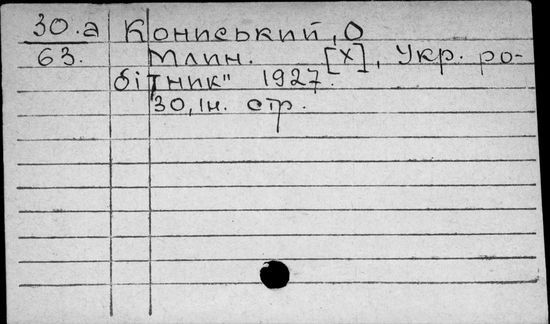 30.а Кониський, О
63. Млин. [X], Укр. ро-
бітник" 1927.
30, Ін. стр.